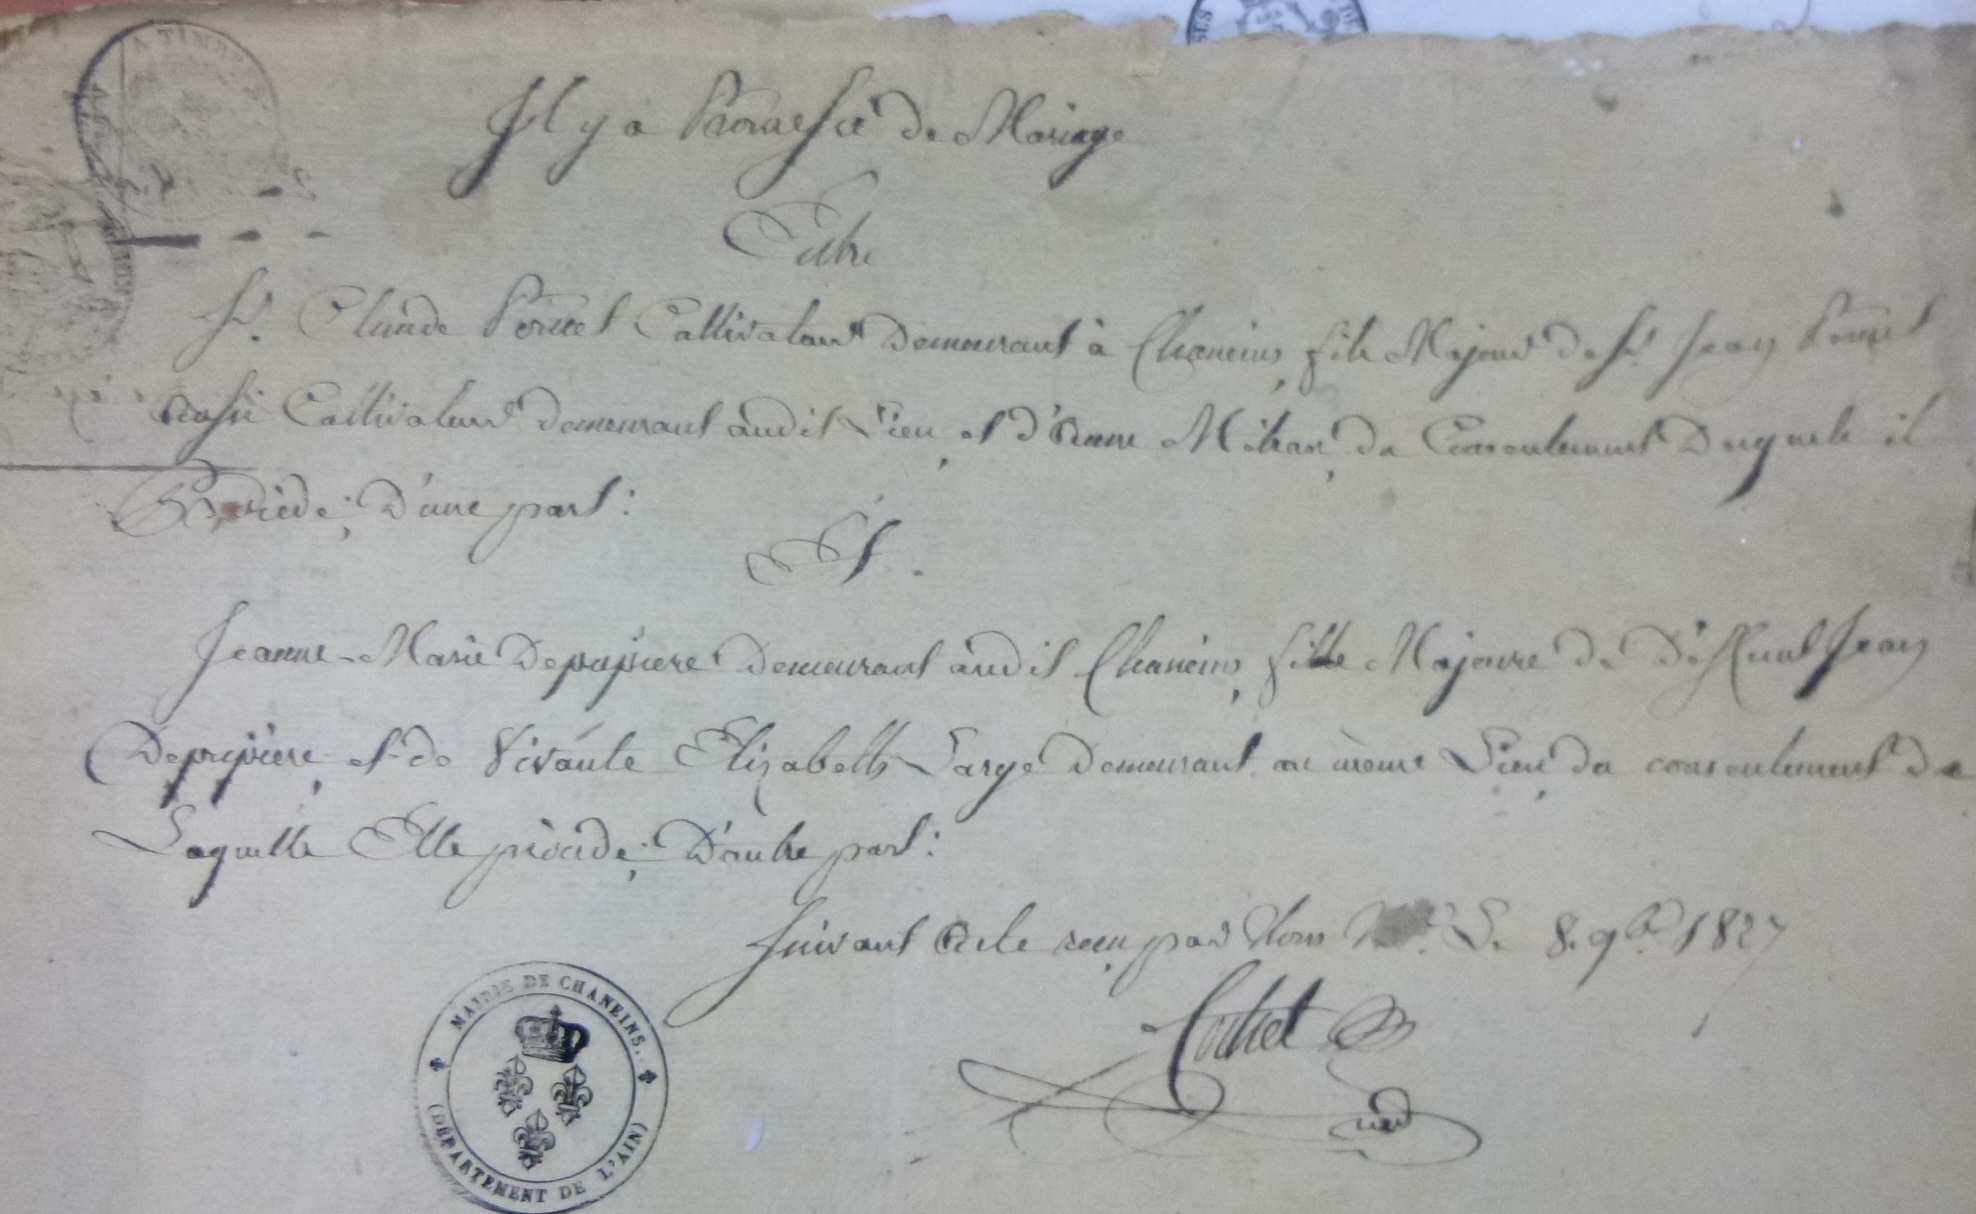 A TIMBRE
Il y a Promesse de Mariage
Entre
Sr. Claude Poncet Cultivateur Demeurant à Chaneins, fils Majeur de Sr. Jean Poncet
aussi Cultivateur demeurant audit Lieu, et d'Anne, du Consentement Desquels il
Procède; D'une part:
Et.
Jeanne-Marie Depaipiere Demeurant audit Chaneins, fille Majeure de Défunt Jean
Depripière, et de Vivante Elizabeth Large Demeurant au même Lieu, du consentement de
Laquelle Elle procède; D'autre part:
Suivant Acte reçu par Nous Le 8. 9bre. 1827
MAIRIE DE CHANEINS.
(DÉPARTEMENT DE L'AIN)